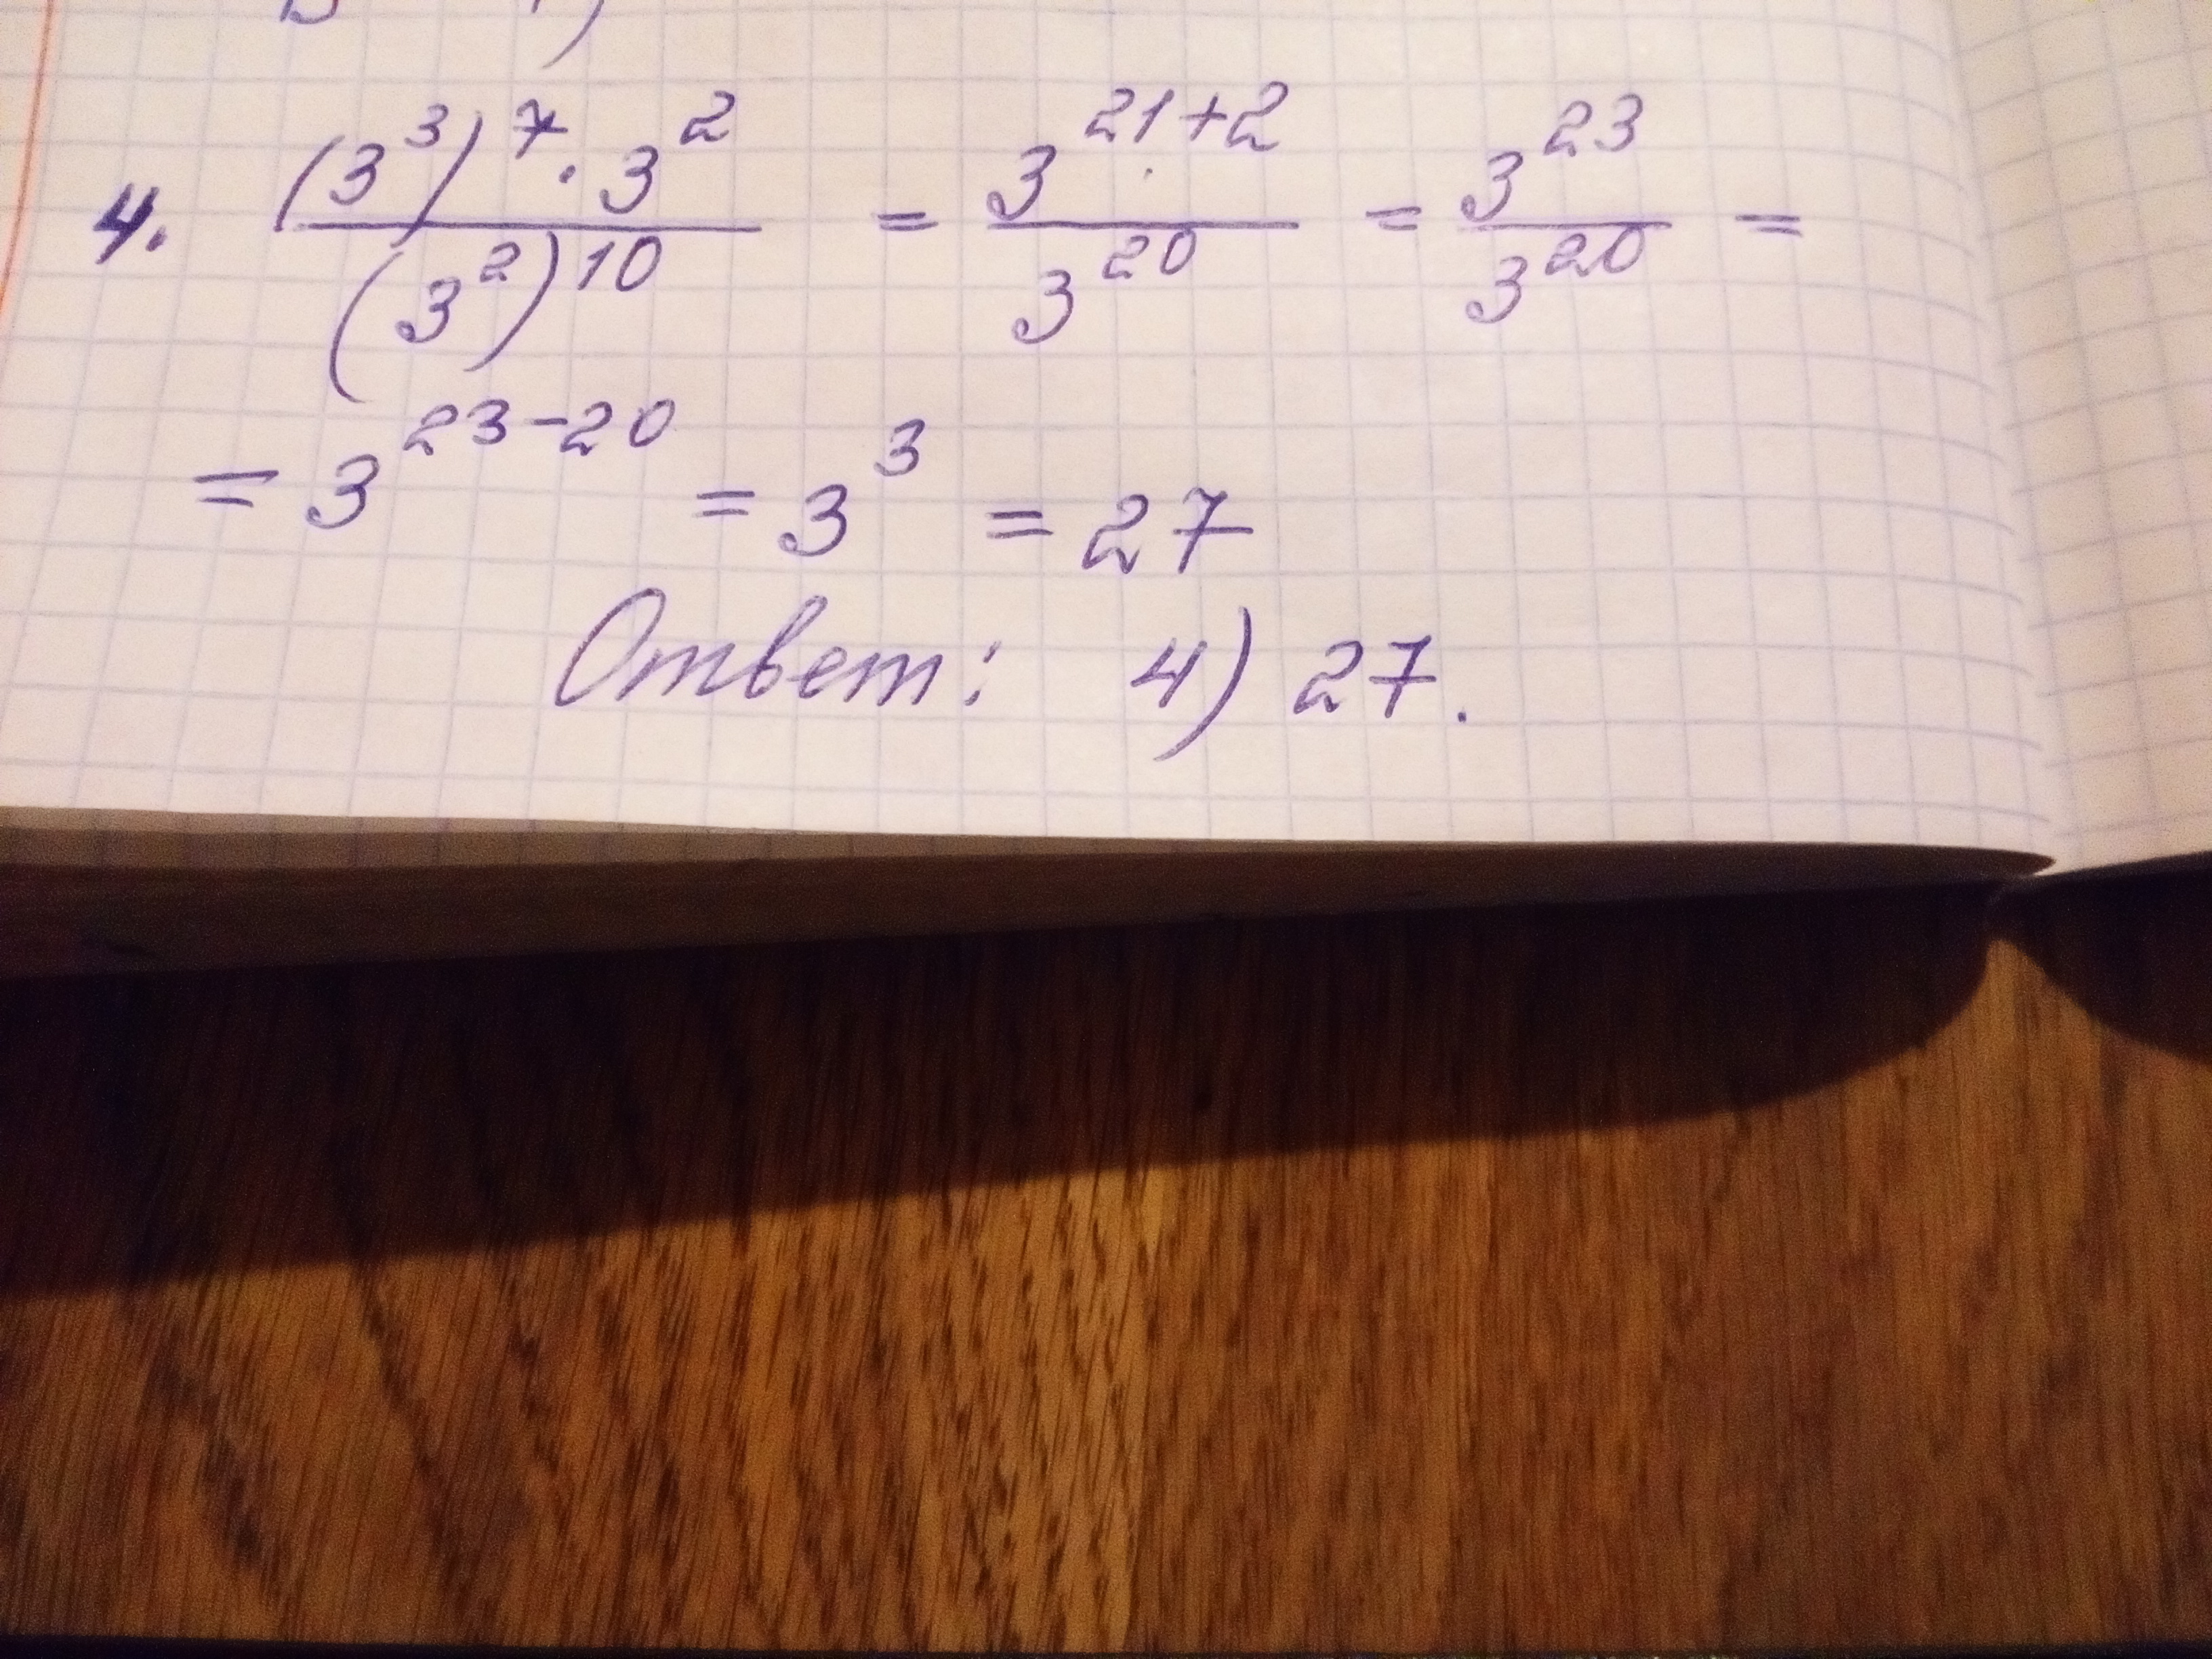 4. (3³)⁷ · 3² / (3²)¹⁰ = 3²¹⁺² / 3²⁰ = 3²³ / 3²⁰ =
= 3²³⁻²⁰ = 3³ = 27
Ответ: 4) 27.